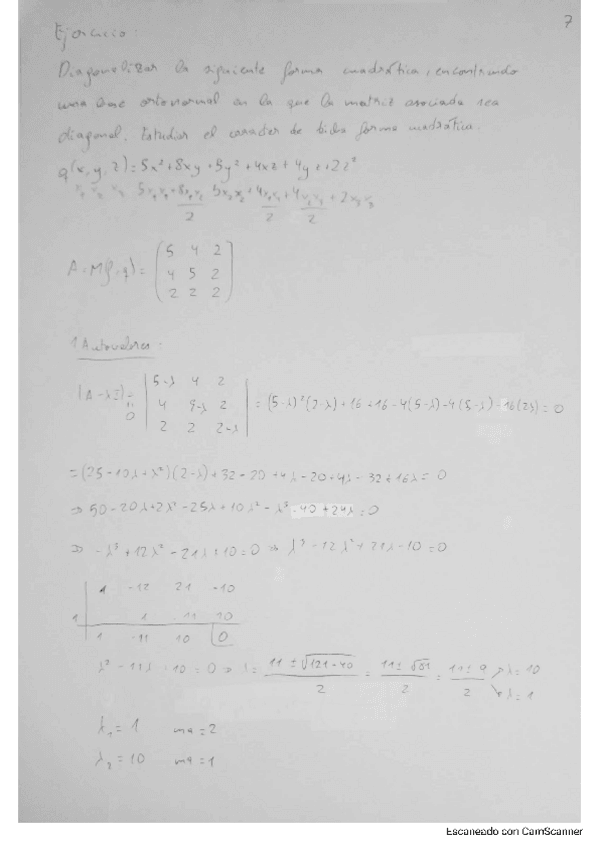 7
Ejercicio:
Diagonalizar la siguiente forma cuadrática, encontrando
una base ortonormal en la que la matriz asociada sea
diagonal. Estudiar el caracter de dicha forma cuadrática.
q(x, y, z) = 5x² + 8xy + 5y² + 4xz + 4yz + 2z²
A = M(f, q) = (5 4 2
4 5 2
2 2 2)
1 Autovalores:
|A - λI| = |5-λ 4 2
4 5-λ 2
2 2 2-λ| = (5-λ)²(2-λ) + 16 + 16 - 4(5-λ) - 4(5-λ) - 16(2-λ) = 0
0
= (25 - 10λ + λ²)(2-λ) + 32 - 20 + 4λ - 20 + 4λ - 32 + 16λ = 0
⇒ 50 - 20λ + 2λ² - 25λ + 10λ² - λ³ - 40 + 24λ = 0
⇒ -λ³ + 12λ² - 21λ + 10 = 0 ⇒ λ³ - 12λ² + 21λ - 10 = 0
1 -12 21 -10
1 1 -11 10
1 -11 10 0
λ² - 11λ + 10 = 0 ⇒ λ = (11 ± √(121-40))/2 = (11 ± √81)/2 = (11 ± 9)/2 → λ = 10
→ λ = 1
λ₁ = 1 ma = 2
λ₂ = 10 ma = 1
Escaneado con CamScanner